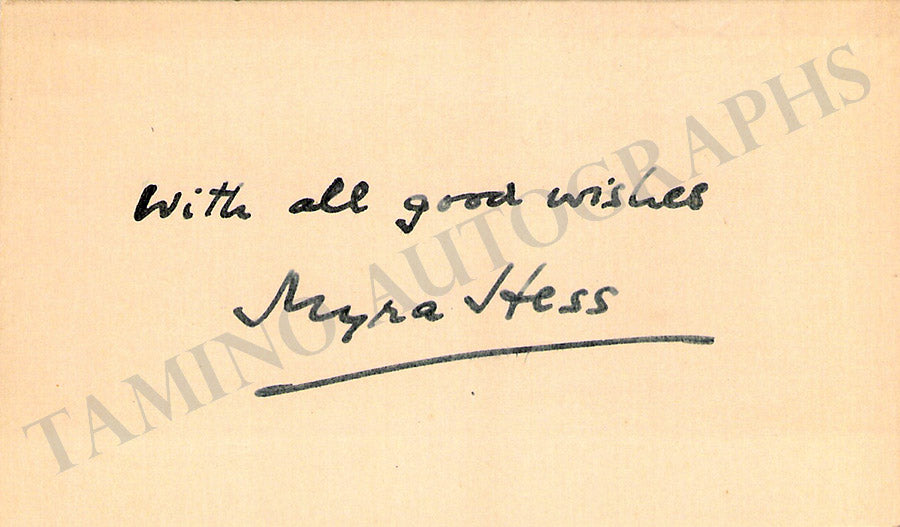 With all good wishes
Myra Hess
TAMINO AUTOGRAPHS